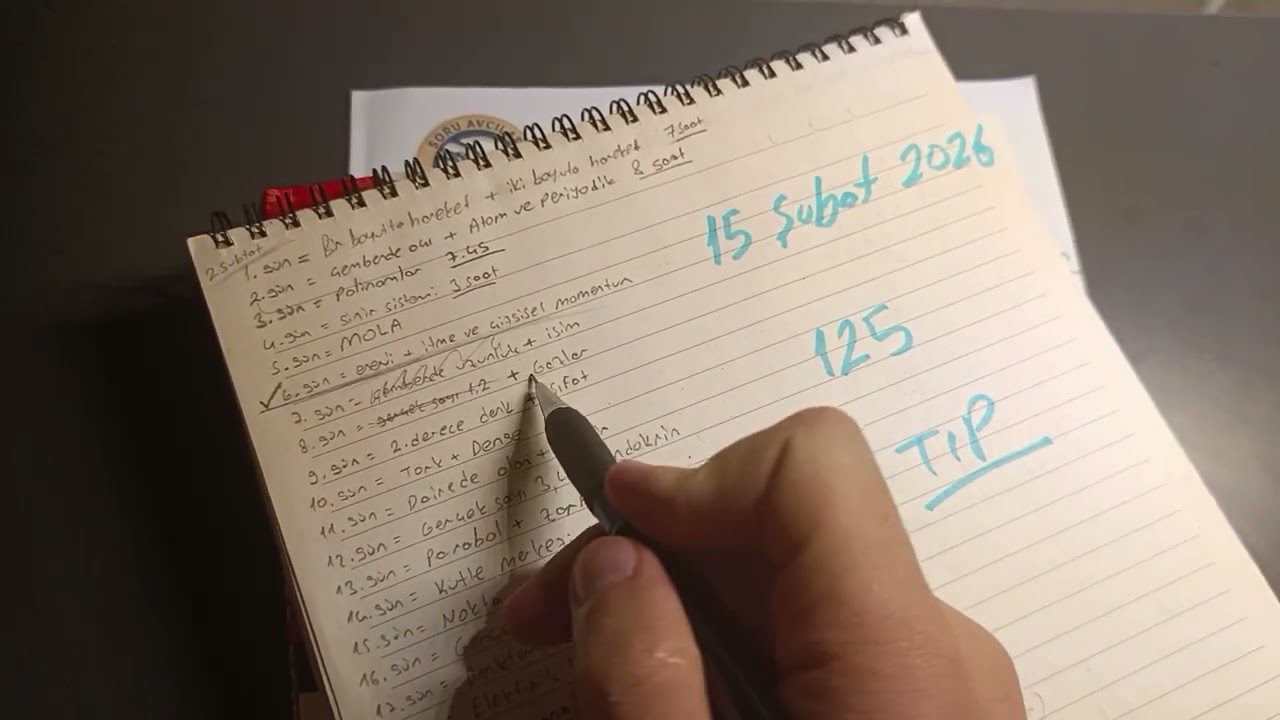 SORU AVCIL
2 Subtat
1.gün = Bir boyutta hareket + iki boyuta hareket 7 saat
2.gün = Çemberde açı + Atom ve periyodik 8 saat
3.gün = Polinomlar 7.45
4.gün = Sinir sistemi 3 saat
5.gün = MOLA
✓ 6.gün = enerji + itme ve çizgisel momentum
7.gün = Çemberde uzunluk + isim
8.gün = gerçek sayı 1,2 + Gazlar
9.gün = 2.derece denk sıfat
10.gün = Tork + Denge
11.gün = Dairede alan +
12.gün = Gerçek sayı 3,4 endokrin
13.gün = Parabol +
14.gün = Kütle merkezi
15.gün = Nokta
16.gün =
17.gün =
15 Şubat 2026
125
TIP